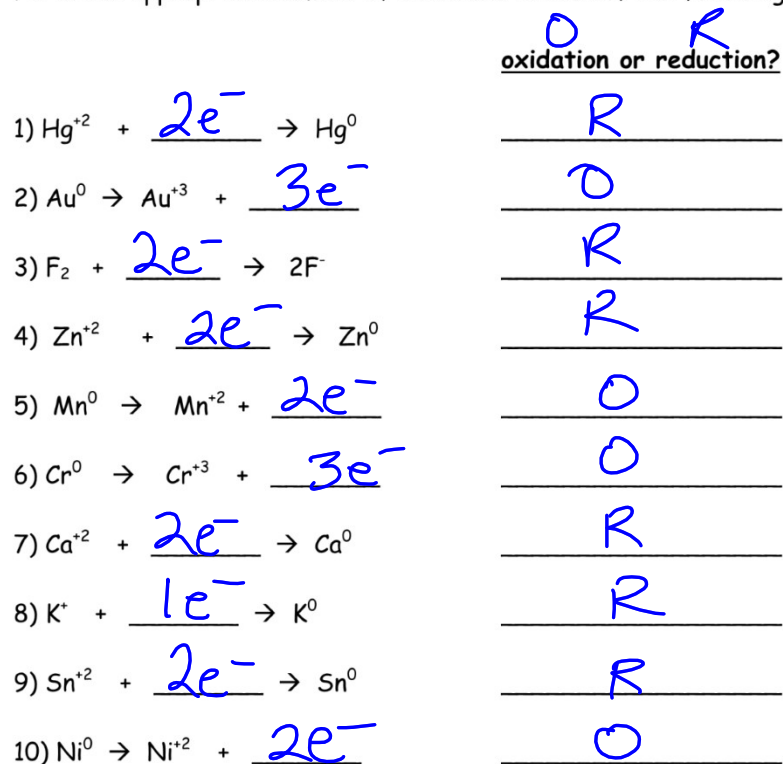 O R
oxidation or reduction?
1) Hg⁺² + 2e⁻ → Hg⁰ R
2) Au⁰ → Au⁺³ + 3e⁻ O
3) F₂ + 2e⁻ → 2F⁻ R
4) Zn⁺² + 2e⁻ → Zn⁰ R
5) Mn⁰ → Mn⁺² + 2e⁻ O
6) Cr⁰ → Cr⁺³ + 3e⁻ O
7) Ca⁺² + 2e⁻ → Ca⁰ R
8) K⁺ + 1e⁻ → K⁰ R
9) Sn⁺² + 2e⁻ → Sn⁰ R
10) Ni⁰ → Ni⁺² + 2e⁻ O